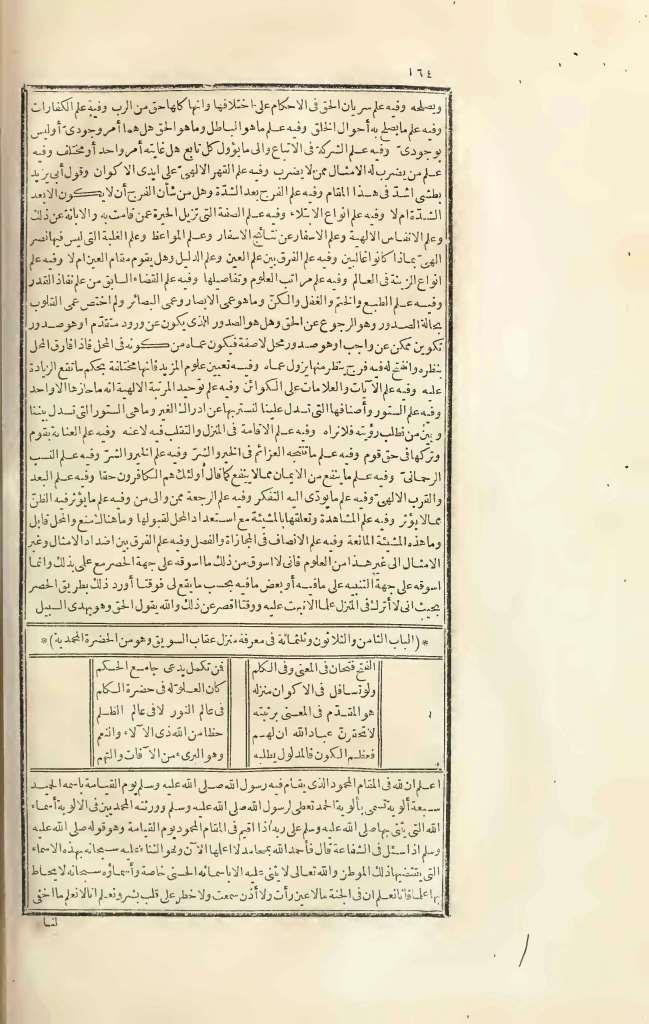 ١٦٤
ويصلحه وفيه علم سريان الحق فى الاحكام على اختلافها وانها كلها حق من الرب وفيه علم الكفارات
وفيه علم ما يصلح به أحوال الخلق وفيه علم ما هو الباطل وما هو الحق هل هما أمر وجودى أو ليس
بوجودى وفيه علم الشركة فى الاتباع والى ما يؤول كل تابع هل غايته أمر واحد أو مختلف وفيه
علم من يضرب له الامثال ممن لا يضرب وفيه علم القهر الالهى على ايدى الاكوان وقول أبى يزيد
بطشى اشد فى هذا المقام وفيه علم الفرج بعد الشدة وهل من شأن الفرج أن لا يكون الا بعد
الشدة ام لا وفيه علم انواع الابتلاء وفيه علم الصفة التى تزيل الحيرة عمن قامت به والابانة عن ذلك
وعلم الانفاس الالهية وعلم الاسفار عن نتائج الاسفار وعلم المواعظ وعلم الغلبة التى ليس فيها نصر
الهى بماذا كانوا غالبين وفيه علم الفرق بين علم العين وعلم الدليل وهل يقوم مقام العين ام لا وفيه علم
انواع الزينة فى العالم وفيه علم مراتب العلوم وتفاصيلها وفيه علم القضاء السابق من علم نفاذ القدر
وفيه علم الطبع والختم والقفل والكنّ وما هو عمى الابصار وعمى البصائر ولم اختص عمى القلوب
بحالة الصدور وهو الرجوع عن الحق وهل هو الصدور الذى يكون عن ورود متقدم او هو صدور
تكوين ممكن عن واجب او هو صدور محل لاصفة فيكون عماه من كونه فى المحل فاذا فارق المحل
بنظره وانفتح له فيه فرج ينظر منها يزول عماه وفيه تعيين علوم المزيد فانها مختلفة بحكم ما تقع الزيادة
عليه وفيه علم الآيات والعلامات على الكوائن وفيه علم توحيد المرتبة الالهية انه ما حازها الا واحد
وفيه علم الستور وأصنافها التى تسدل علينا لنستتر بها عن ادراك الغير وما هى الستور التى تسدل بيننا
وبين من نطلب رؤيته فلا نراه وفيه علم الاقامة فى المنزل والتقلب فيه لا عنه وفيه علم العناية بقوم
وتركها فى حق قوم وفيه علم ما تنتجه العزائم فى الخير والشرّ وفيه علم الخير والشرّ وفيه علم النسب
الرحمانى وفيه علم ما ينفع من الايمان مما لا ينفع كما قال أولئك هم الكافرون حقا وفيه علم البعد
والقرب الالهى وفيه علم ما يؤدى اليه التفكر وفيه علم الرجعة ممن والى من وفيه علم ما يؤثر فيه الظنّ
مما لا يؤثر وفيه علم المشاهدة وتعلقها بالمشيئة مع استعداد المحل لقبولها وما هناك منع والمحل قابل
وما هذه المشيئة المانعة وفيه علم الانصاف فى المجازاة والفصل وفيه علم الفرق بين اضداد الامثال وغير
الامثال الى غير هذا من العلوم فانى لا اسوق من ذلك ما اسوقه على جهة الحصر مع على بذلك وانما
اسوقه على جهة التنبيه على ما فيه أو بعض ما فيه بحسب ما يقع لى فوقتا أورد ذلك بطريق الحصر
بحيث انى لا أترك فى المنزل علما الا نبهت عليه ووقتا اقصر عن ذلك والله يقول الحق وهو يهدى السبيل
* (الباب الثامن والثلاثون وثلثمائة فى معرفة منزل عقاب السويق وهو من الحضرة المحمدية) *
الفتح فتحان فى المعنى وفى الكلم فمن تكمل يدعى جامع الحكم
ولو تسافل فى الاكوان منزله كان العلوّ له فى حضرة الكلم
هو المقدّم فى المعنى برتبته فى عالم النور لا فى عالم الظلم
لا تحقرنّ عباد الله ان لهم حظا من الله ذى الآلاء والنعم
فعظم الكون فالمدلول يطلبه وهو البرىء من الآفات والتهم
اعلم ان لله فى المقام المحمود الذى يقام فيه رسول الله صلى الله عليه وسلم يوم القيامة باسمه الحميد
سبعة ألوية تسمى بألوية الحمد تعطى لرسول الله صلى الله عليه وسلم وورثته المحمديين فى الالوية أسماء
الله التى يثنى بها صلى الله عليه وسلم على ربه اذا اقيم فى المقام المحمود يوم القيامة وهو قوله صلى الله عليه
وسلم اذا سئل فى الشفاعة قال فأحمد الله بمحامد لا اعلمها الآن وهو الثناء عليه سبحانه بهذه الاسماء
التى يقتضيها ذلك الموطن والله تعالى لا يثنى عليه الا باسمائه الحسنى خاصة وأسماؤه سبحانه لا يحاط
بها علما فانا نعلم ان فى الجنة ما لا عين رأت ولا أذن سمعت ولا خطر على قلب بشر ونعلم انا لا نعلم ما اخفى
لنا